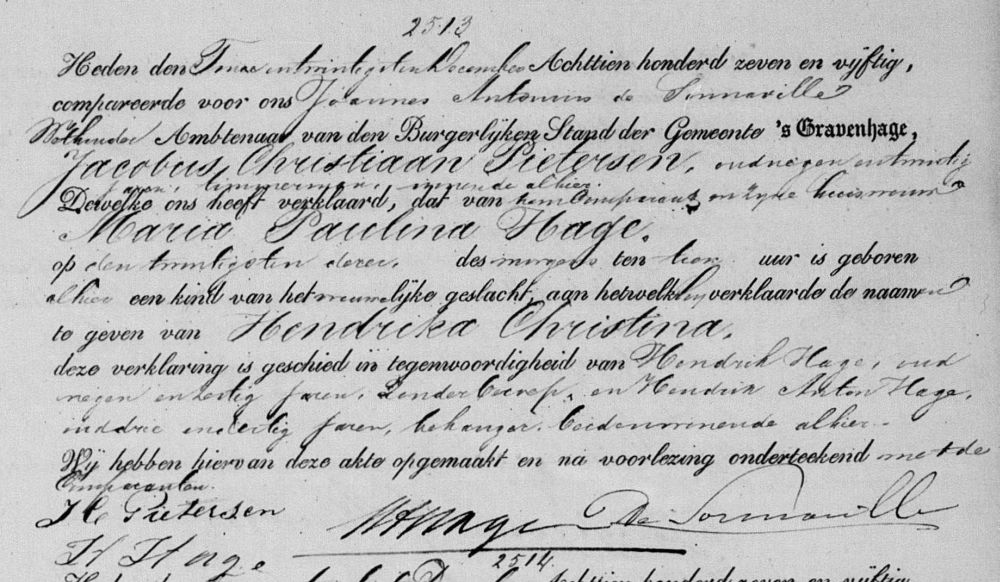 2513
Heden den Twee en twintigsten December Achttien honderd zeven en vijftig,
compareerde voor ons Joannes Antonius de Sonnaville
Wethouder Ambtenaar van den Burgerlijken Stand der Gemeente 's Gravenhage,
Jacobus Christiaan Pietersen, oud negen en twintig
jaren, timmerman, wonende alhier.
Dewelke ons heeft verklaard, dat van hem Comparant en zijne huisvrouw
Maria Paulina Hage.
op den twintigsten dezer, des morgens ten tien uur is geboren
alhier een kind van het vrouwelijke geslacht, aan hetwelk hij verklaarde de naamen
te geven van Hendrika Christina.
deze verklaring is geschied in tegenwoordigheid van Hendrik Hage, oud
negen en zestig jaren, zonder beroep, en Hendrik Anton Hage,
oud drie en dertig jaren, behanger, beiden wonende alhier.
Wij hebben hiervan deze akte opgemaakt en na voorlezing onderteekend met de
Comparanten.
JC Pietersen HAHage De Sonnaville
H Hage
2514